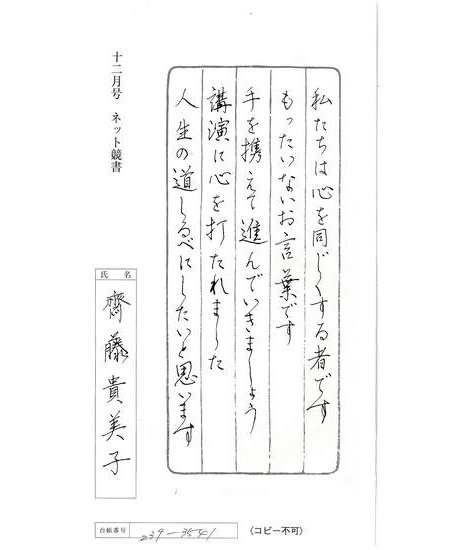 私たちは心を同じくする者です
もったいないお言葉です
手を携えて進んでいきましょう
講演に心を打たれました
人生の道しるべにしたいと思います
十二月号 ネット競書
氏名
齋藤貴美子
台帳番号 239-3541
〈コピー不可〉